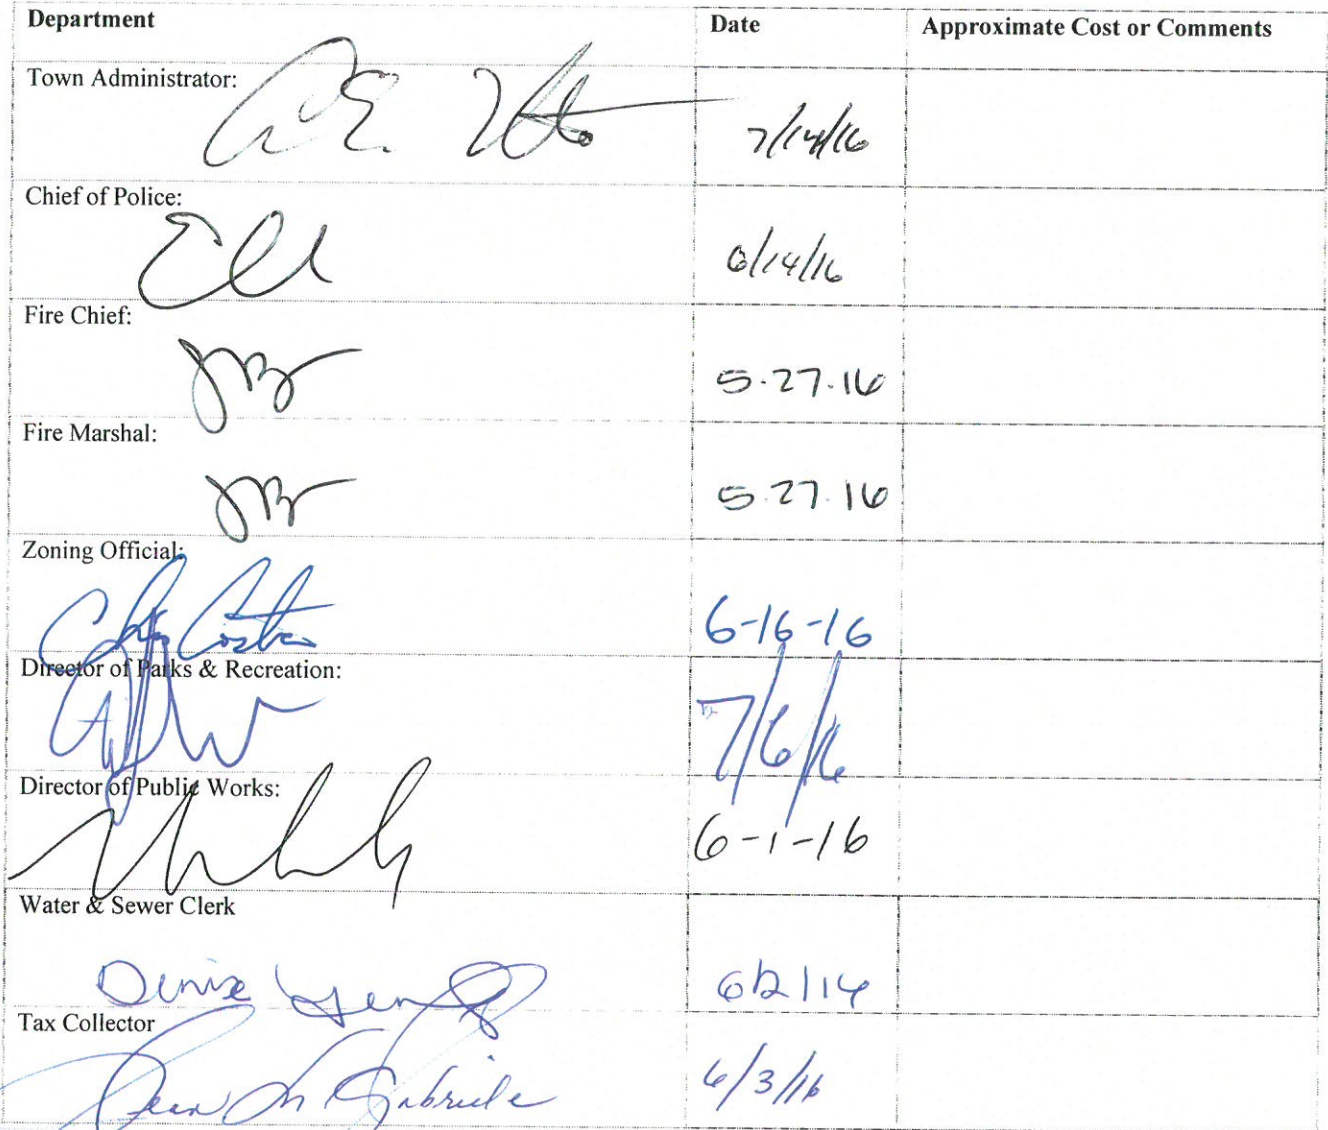 Department Date Approximate Cost or Comments
Town Administrator:
7/14/16
Chief of Police:
6/14/16
Fire Chief:
5.27.16
Fire Marshal:
5.27.16
Zoning Official:
6-16-16
Director of Parks & Recreation:
7/6/16
Director of Public Works:
6-1-16
Water & Sewer Clerk
Denise
Tax Collector
Jean M Gabriele 6/3/16